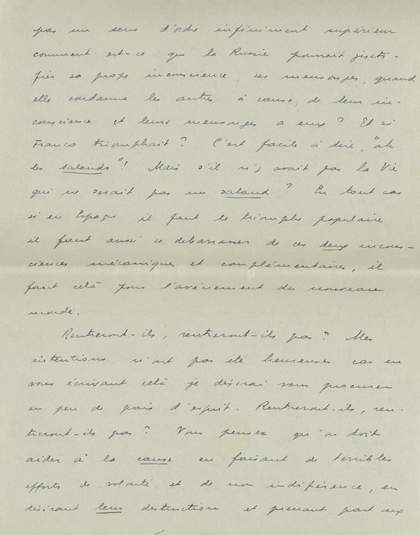 pas un sens d'ordre infiniment supérieur
comment est-ce que la Russie pourrait justi-
fier sa propre inconscience, ses mensonges, quand
elle condamne les autres à cause de leur in-
conscience et leurs mensonges à eux? Et si
Franco triomphait? C'est facile à dire, "ah
les salauds"! Mais s'il n'y avait pas la Vie
qui ne serait pas un salaud? En tout cas
si en Espagne il faut le triomphe populaire
il faut aussi se débarrasser de ces deux incons-
ciences mécaniques et complémentaires, il
faut celà pour l'avènement du nouveau
monde.
Rentreront-ils, rentreront-ils pas? Mes
intentions n'ont pas été heureuses car en
vous écrivant celà je désirai vous procurer
un peu de paix d'esprit. Rentreront-ils, ren-
treront-ils pas? Vous pensez qu'on doit
aider à la cause en faisant de terribles
efforts de volonté et de non indifférence, en
désirant leur destruction et prenant part aux